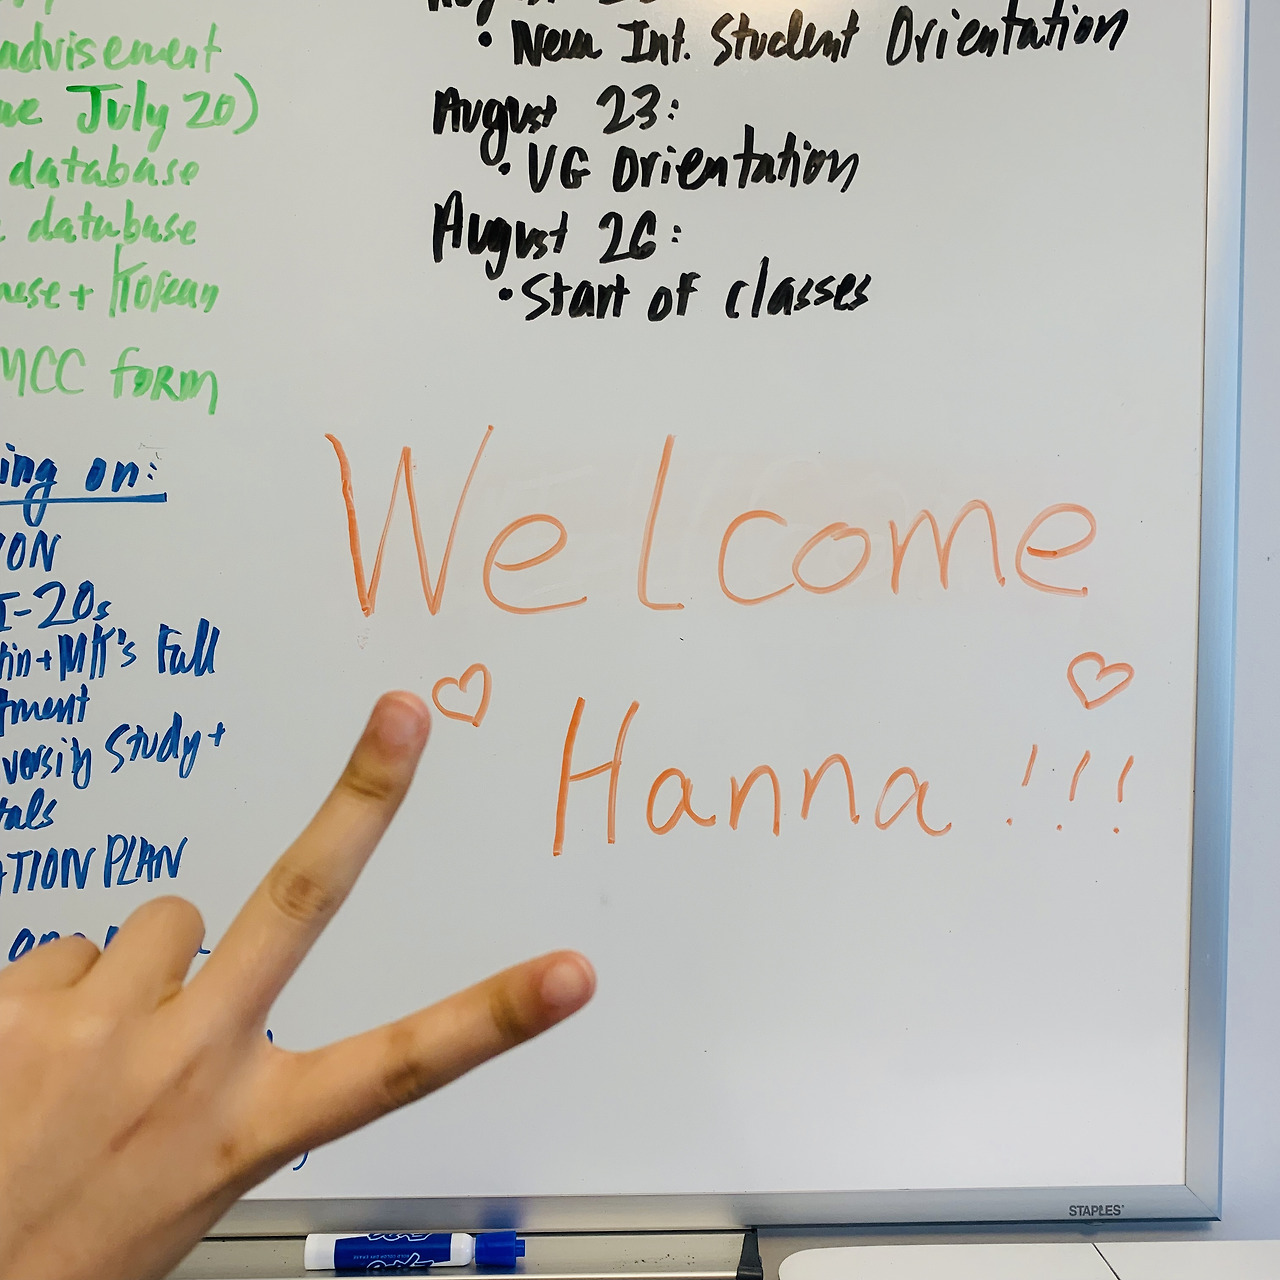 advisement
July 20)
database
database
+ Korean
MCC form
ing on:
I-20s
+MK's Fall
versity Study +
PLAN
• New Int. Student Orientation
August 23:
• VG Orientation
August 26:
• Start of classes
Welcome
Hanna !!!
STAPLES